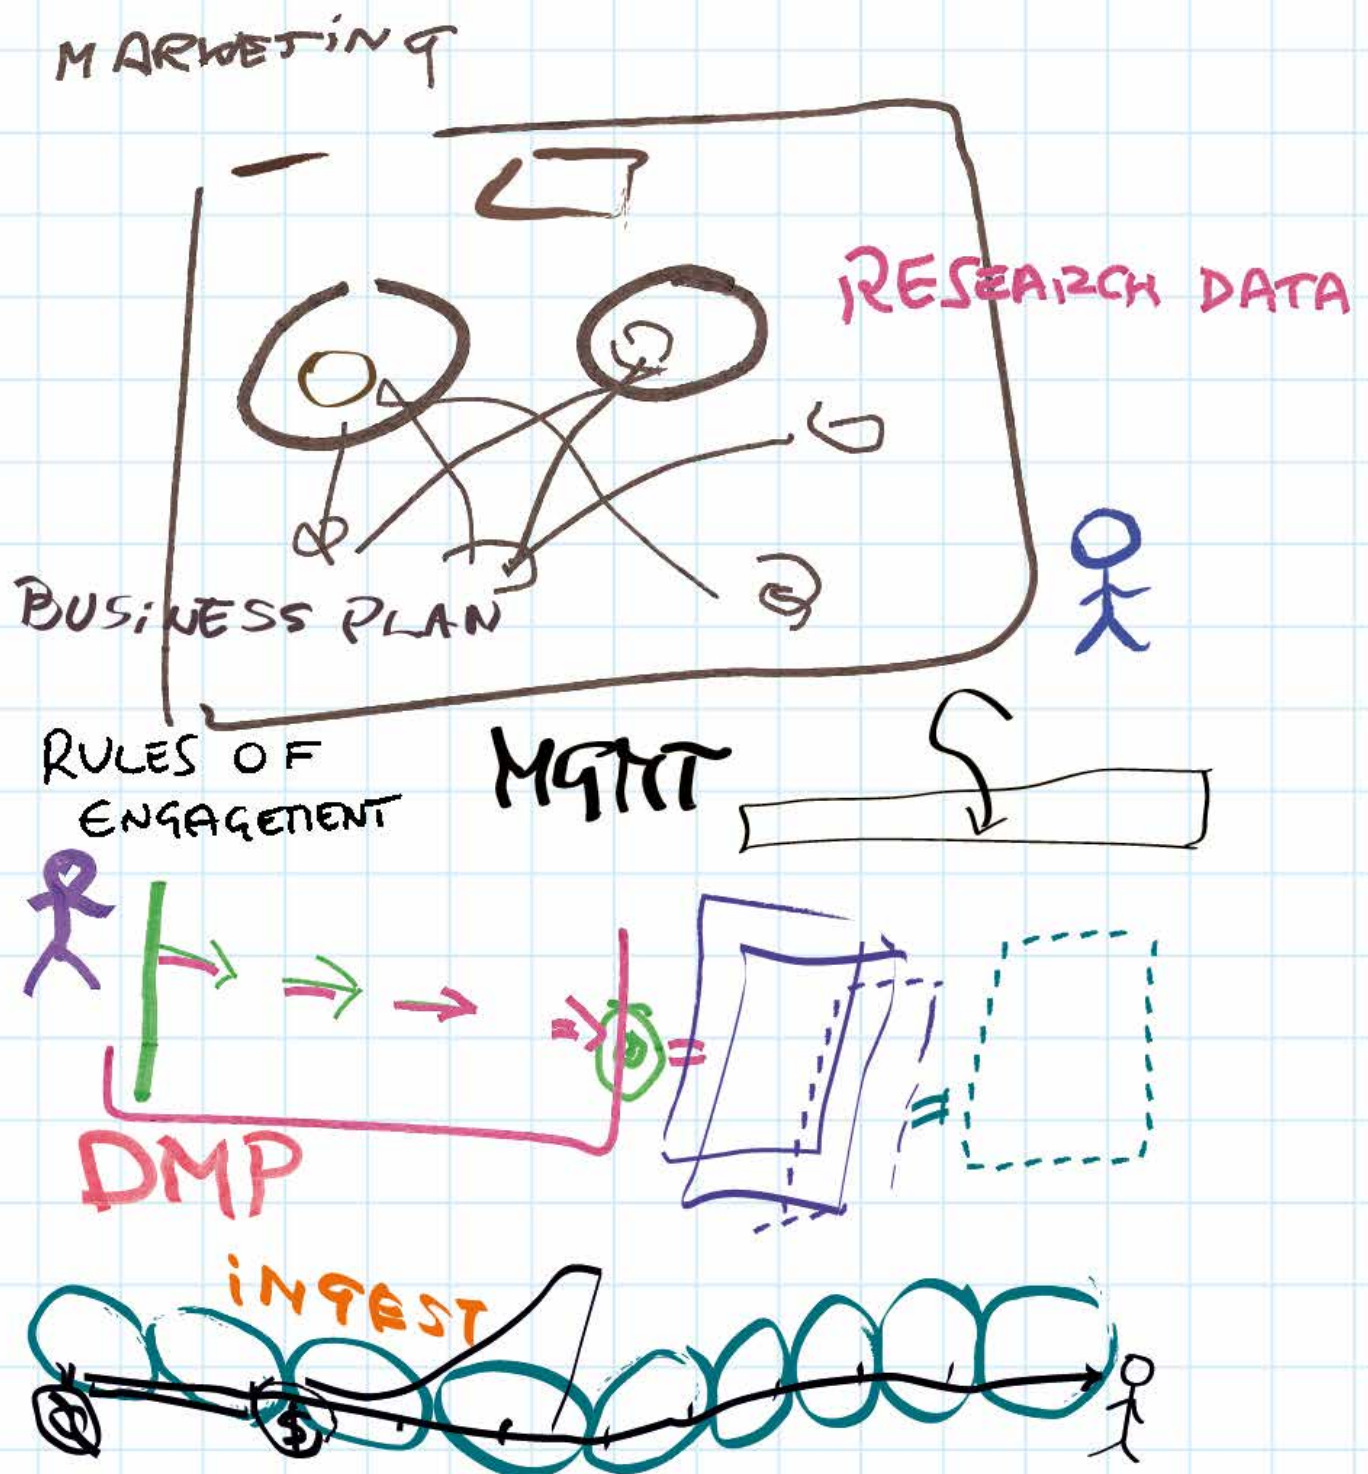 MARKETING
RESEARCH DATA
BUSINESS PLAN
RULES OF
ENGAGEMENT
MGMT
DMP
INGEST
$